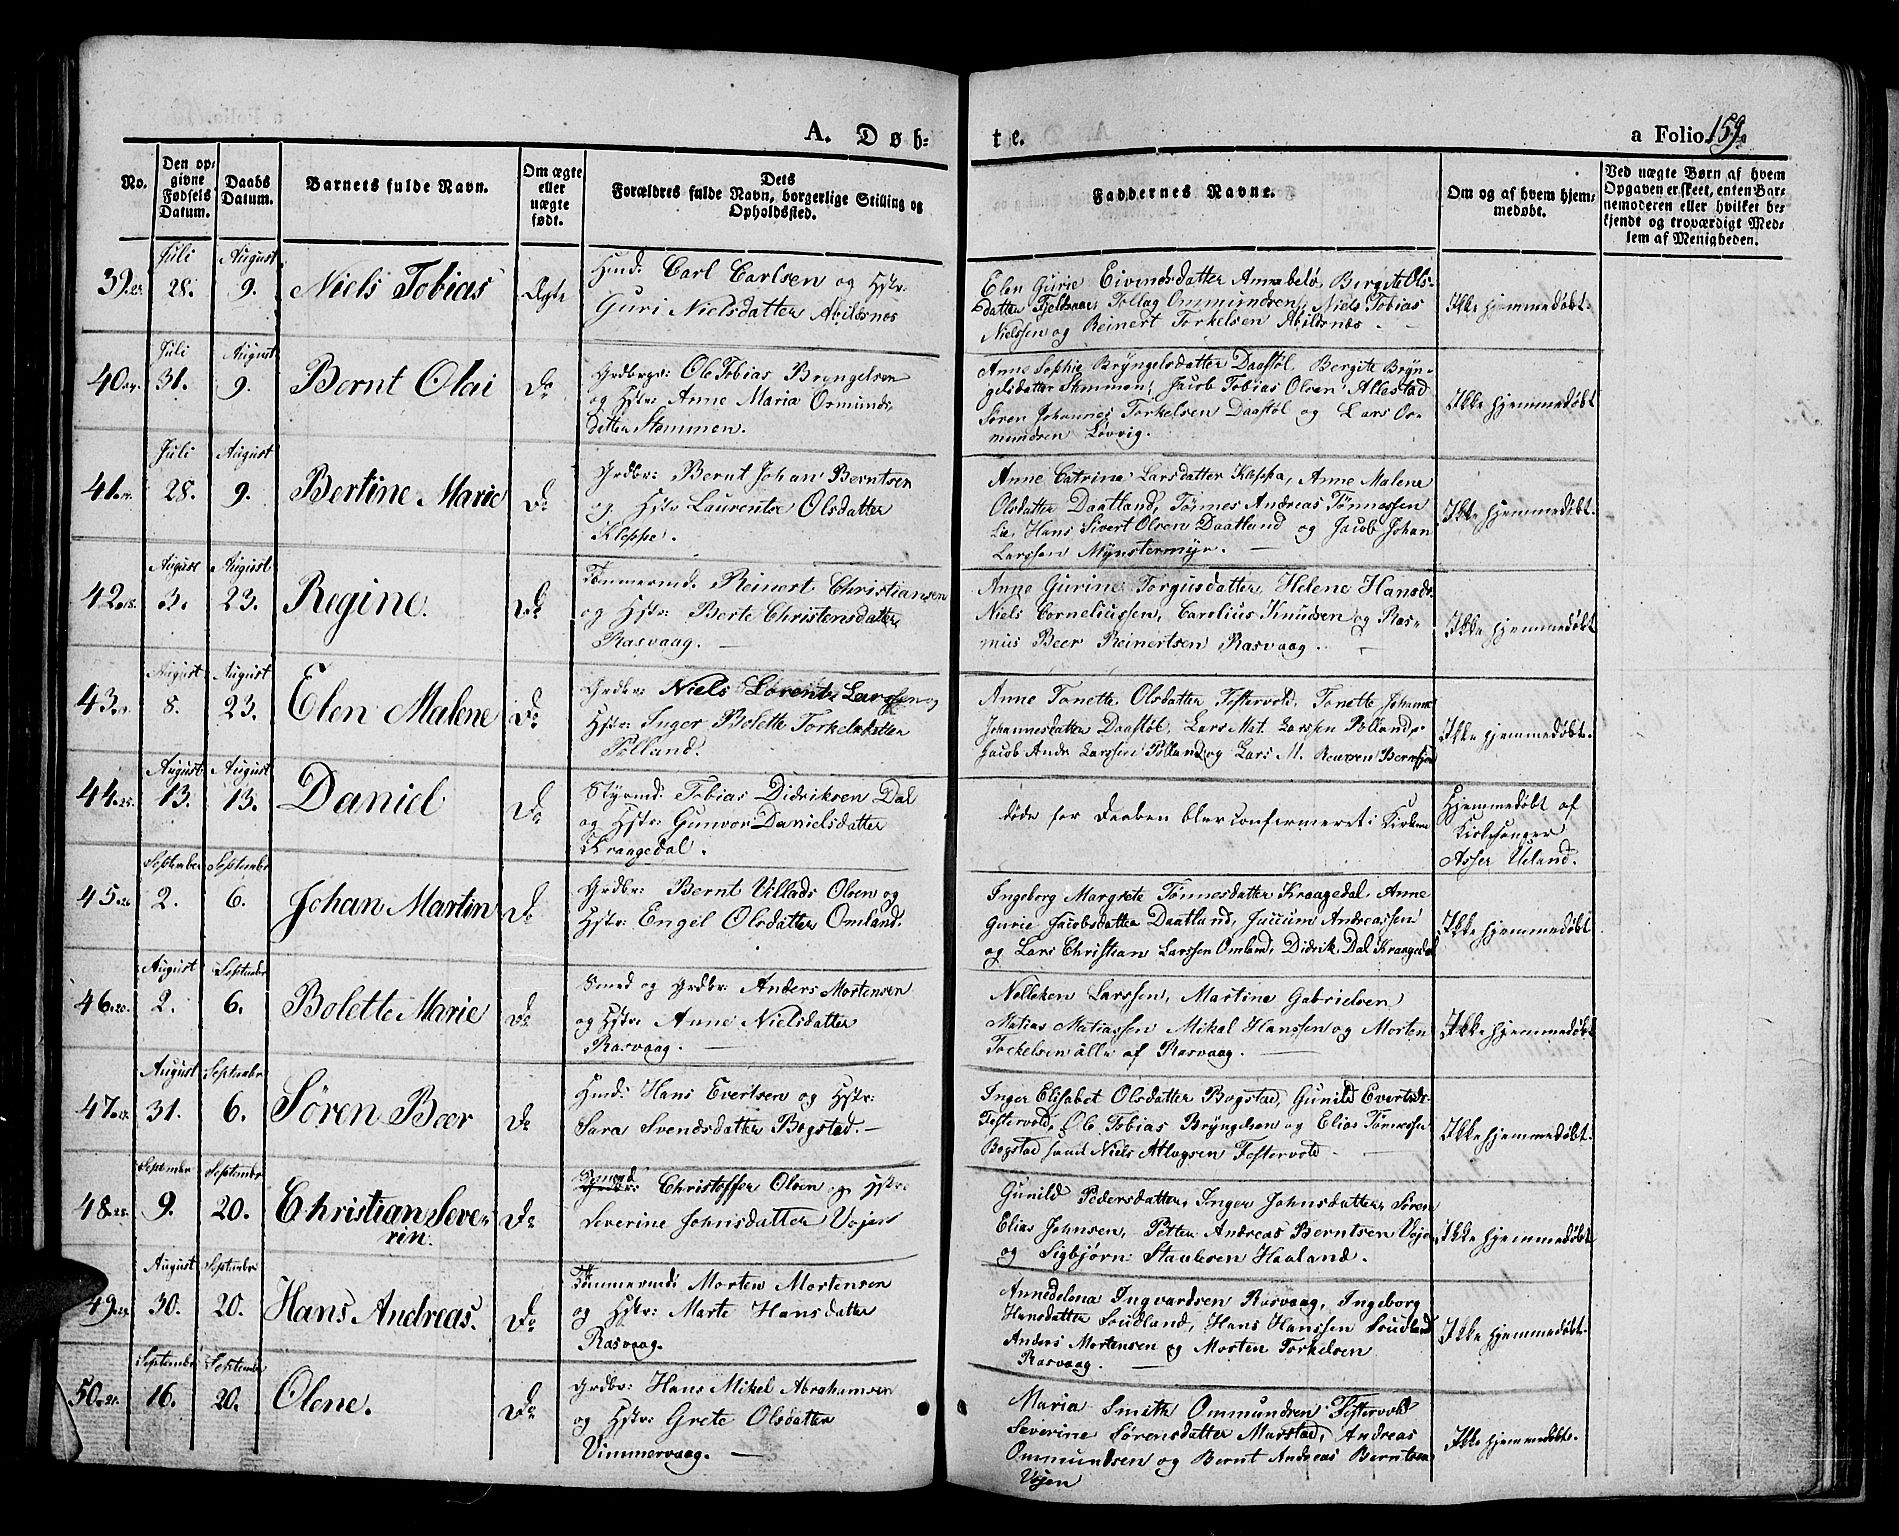 A. Døb-
te.
a Folio 159.
No.
Den op-
givne
Fødsels
Datum.
Daabs
Datum.
Barnets fulde Navn.
Om ægte
eller
uægte
født.
Dets
Forældres fulde Navn, borgerlige Stilling og
Opholdssted.
Faddernes Navne.
Om og af hvem hjem-
medøbt.
Ved uægte Børn af hvem
Opgaven er skeet, enten Bar-
nemoderen eller hvilket be-
kjendt og troværdigt Med-
lem af Menigheden.
39.
Juli
28.
August
9.
Niels Tobias
Ægte
Hmd: Carl Carlsen og Hstr:
Guri Nielsdatter Abilsnæs
Elen Gurie Eivindsdatter Annabelø, Bergite Ols-
datter Fjeldsaae, Tollag Ommundsen, Niels Tobias
Nielssen og Reinert Torkelsen Abilsnæs.
Ikke hjemmedøbt.
40.
Juli
31.
August
9.
Bernt Olai
Do
Grdbr: Ole Tobias Bryngelsen
og Hstr: Anne Maria Osmunds-
datter Stommen.
Anne Sophie Bryngelsdatter Daastøl, Bergite Bryn-
gelsdatter Stommen, Jacob Tobias Olsen Allestad
Søren Johannes Torkelsen Daastøl og Lars Os-
mundsen Løvvig.
Ikke hjemmedøbt
41.
Juli
28.
August
9.
Bertine Marie
Do
Grdbr: Bernt Johan Berntsen
og Hstr Laurentze Olsdatter
Kleppe.
Anne Catrine Larsdatter Kleppa, Anne Malene
Olsdatter Daatland, Tønnes Andreas Tønnessen
Lie, Hans Sivert Olsen Daatland og Jacob Johan
Larssen Mynstermyr.
Ikke hjemmedøbt.
42.
August
3.
August
23.
Regine.
Do
Tømmermd: Reinert Christiansen
og Hstr: Berte Christensdatter
Rasvaag.
Anne Gurine Torgusdatter, Helene Hansdr
Niels Corneliussen, Carolius Knudsen og Ras-
mus Beer Reinertsen Rasvaag.
Ikke hjemmedøbt
43.
August
8.
August
23.
Elen Malene
Do
Grdbr: Niels Lorents Larssen og
Hstr: Inger Bolette Torkelsdatter
Polland.
Anne Tonette Olsdatter Festervold, Tonette Johanne
Johannesdatter Daastøl, Lars Mat. Larssen Polland,
Jacob Andr Larssen Polland og Lars M.
Ikke hjemmedøbt.
44.
August
13.
August
13.
Daniel
Do
Styrmd: Tobias Didriksen Dal
og Hstr: Gunvor Danielsdatter
Kraagedal.
døde før Daaben blev confirmeret i Kirken
Hjemmedøbt af
Kirkesanger
Asser Ueland.
45.
September
2.
September
6.
Johan Martin
Do
Grdbr: Bernt Villads Olsen og
Hstr: Engel Olsdatter Omland.
Ingeborg Margrete Tønnesdatter Kraagedal, Anne
Gurie Jacobsdatter Daatland, Jaccum Andreassen
og Lars Christian Larssen Omland, Didrik Dal Kraagedal
Ikke hjemmedøbt
46.
August
2.
Septembr
6.
Bolette Marie
Do
Smed og Grdbr: Anders Mortensen
og Hstr: Anne Nielsdatter
Rasvaag.
Nelleken Larssen, Martine Gabrielsen
Matias Matiassen Mikal Hanssen og Morten
Torkelsen alle af Rasvaag.
Ikke hjemmedøbt
47.
August
31.
Septembr
6.
Søren Beer
Do
Hmd: Hans Evertsen og Hstr:
Sara Svendsdatter Bogstad.
Inger Elisabet Olsdatter Bogstad, Gunild Evertsdr
Festervold, Ole Tobias Bryngelsen og Elias Tønnessen
Bogstad samt Niels Atlagsen Festervold.
Ikke hjemmedøbt.
48.
Septembr
9.
Septembr
20.
Christian Seve-
rin.
Do
Christoffer Olsen og Hstr:
Severine Johnsdatter Vøjen
Gunild Pedersdatter, Inger Johnsdatter, Søren
Elias Johnsen, Petter Andreas Berntsen Vøjen
og Sigbjørn Staalesen Haaland.
Ikke hjemmedøbt
49.
August
30.
Septembr
20.
Hans Andreas.
Do
Tømmermd: Morten Mortensen
og Hstr: Marte Hansdatter
Rasvaag.
Annedelena Ingvardsen Rasvaag, Ingeborg
Hansdatter Soudland, Hans Hanssen Soudland
Anders Mortensen og Morten Torkelsen
Rasvaag.
Ikke hjemmedøbt.
50.
September
16.
September
20.
Olene.
Do
Grdbr: Hans Mikel Abrahamsen
og Hstr: Grete Olsdatter
Vimmervaag.
Maria Smith Ommundsen Festervold
Severine Sørensdatter Maastad, Andreas
Ommundsen og Bernt Andreas Berntsen
Vøjen
Ikke hjemmedøbt.